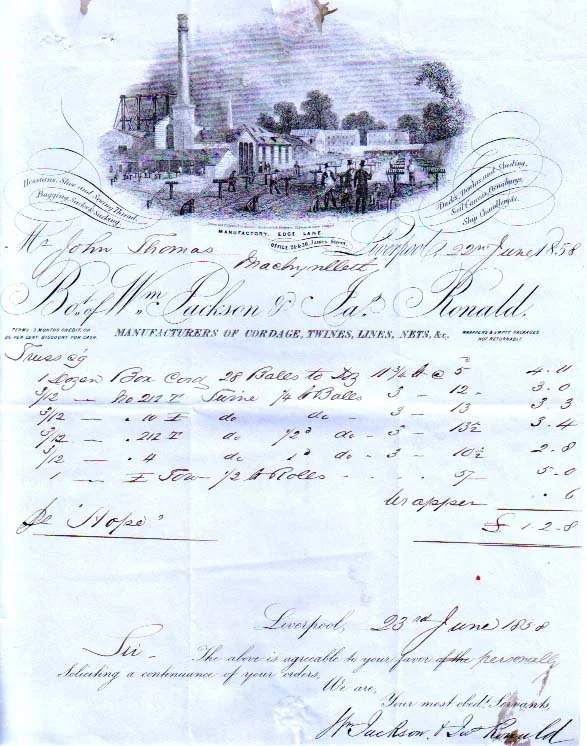 Hessians, Shoe and Sewing Thread,
Bagging, Sacks & Sacking.
Ducks, Dowlas and Sheeting,
Sail Canvas, Osnaburgs,
Ship Chandlery &c.
MANUFACTORY, EDGE LANE
OFFICE, James Street.
Mr John Thomas Liverpool, 22nd June 1858
Machynlleth
Bot. of Wm. Jackson & Jas. Ronald.
TERMS 3 MONTHS CREDIT, OR
PER CENT. DISCOUNT FOR CASH.
MANUFACTURERS OF CORDAGE, TWINES, LINES, NETS, &c.
WRAPPERS & EMPTY PACKAGES
NOT RETURNABLE
Truss
1 Dozen Box Cord 28 Balls to 11¾ lb @ 5 4.11
3/12 — No 212 Twine ¼ lb Balls 3 - 12 - 3.0
3/12 — . 10 I do do - 3 - 13 3.3
3/12 — . 212 I do ½d do - 3 - 13½ 3.4
3/12 — . 4 do 1d do - 3 - 10½ 2.8
1 — I Tow ½ lb Rolls - . . 5/ 5.0
Wrapper . 6
Pe "Hope" £ 1.2.8
Liverpool, 23rd June 1858
Sir - The above is agreeable to your favor of the personally
Soliciting a continuance of your orders,
We are,
Your most obedt. Servants,
Wm Jackson & Jas Ronald